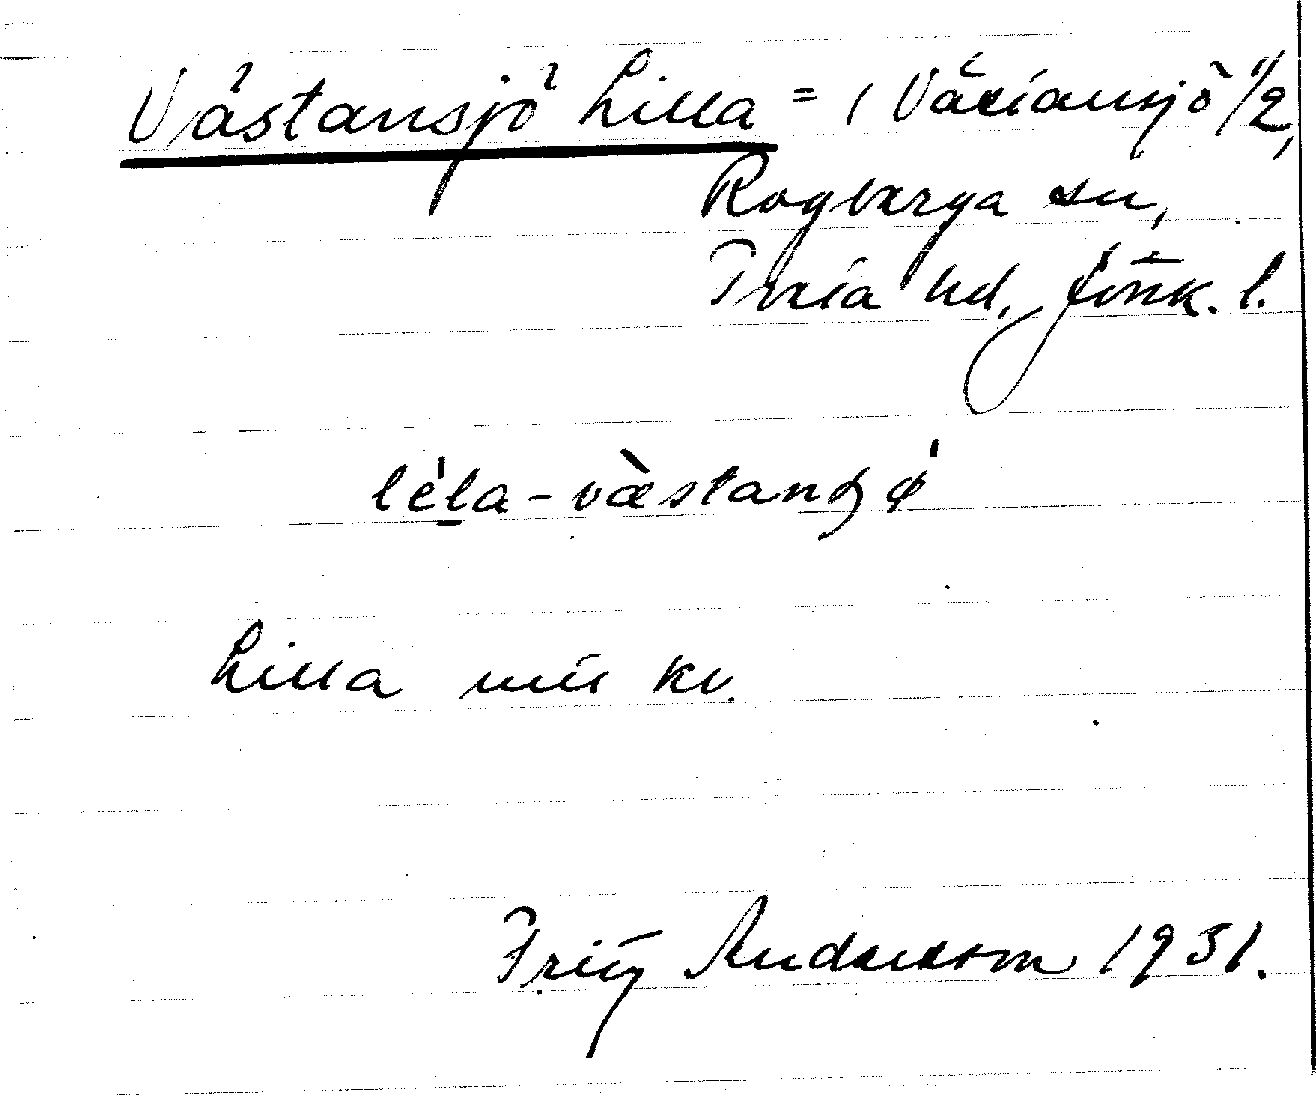 Västansjö Lilla = 1 Västansjö 1/2,
Rogberga sn,
Tveta hd, Jönk. l.
lèla-vàstanʃǿ
Lilla mtl kv.
Fritz Andersson 1931.